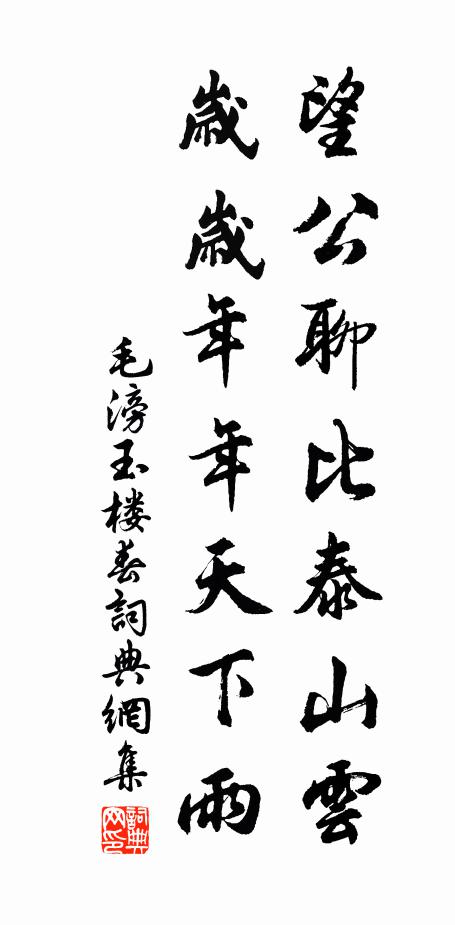 望公聊比泰山雲
歲歲年年天下雨
毛滂玉楼春詞典網集
詞典网印